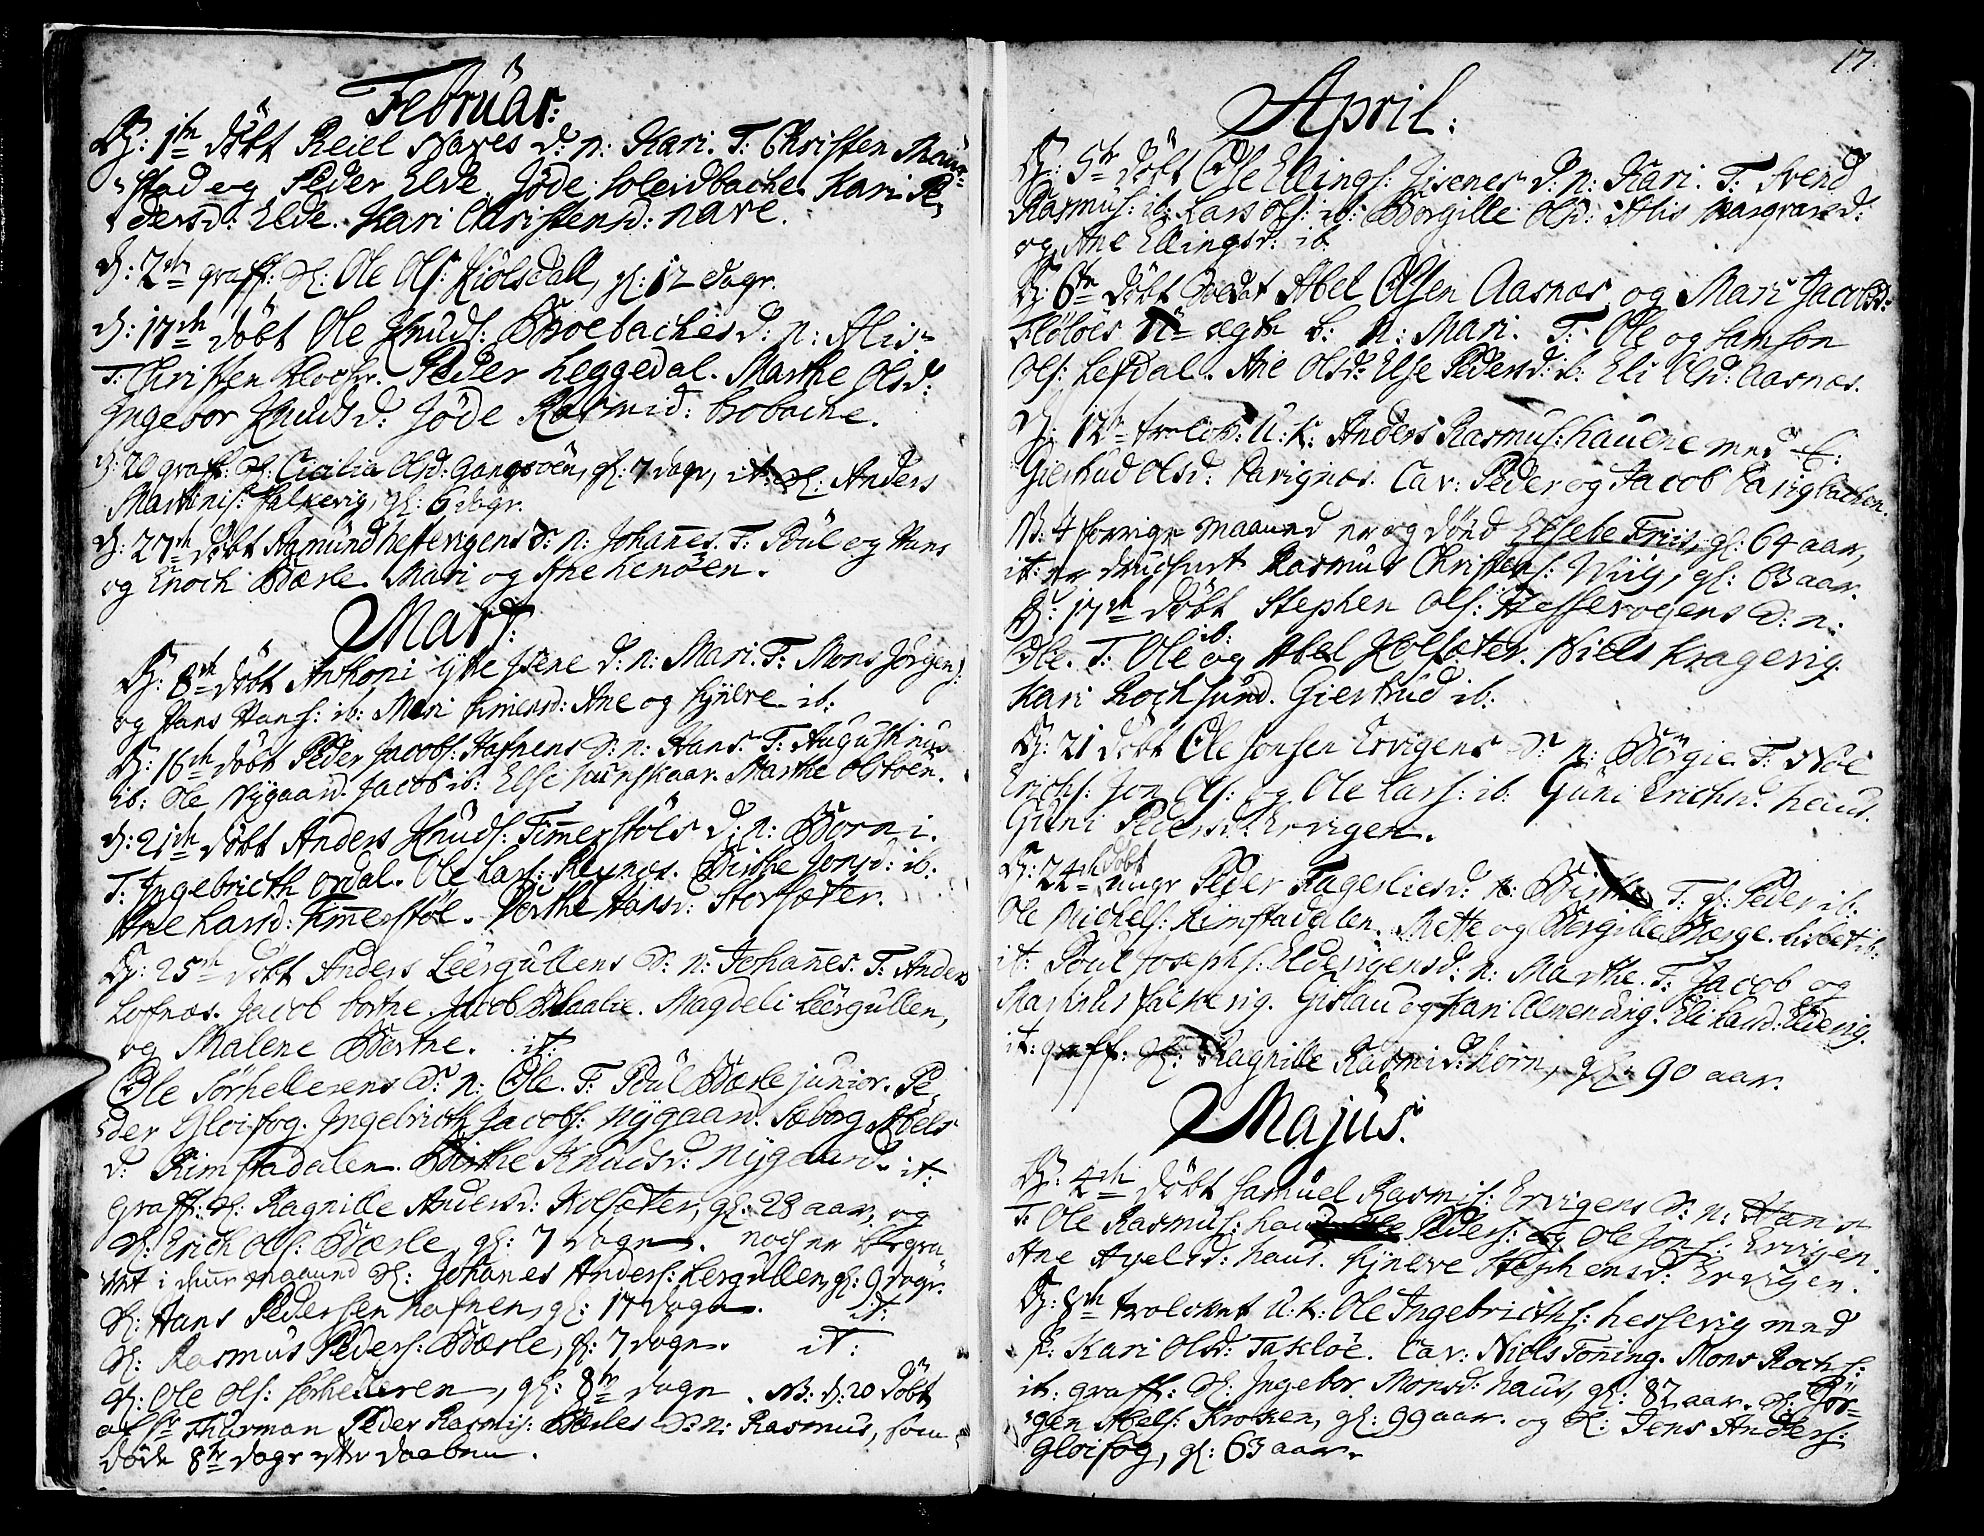 Februar:
D: 1te döbt Reiel Naves d: n: Kari. T: Christen Maur-
stad og Peder Elde. Jöde Soleidbache. Kari Pe-
dersd: Elde. Kari Christensd: Nave.
D: 2den graff: Sl: Ole Ols: Kiölsdall, gl: 12 dagr.
D: 17de döbt Ole Knuds: Broebaches d: n: Alis-
T: Christen Klocher. Peder Leggedal. Marthe Olsd:
Ingebor Knudsd: Jöde Rasmusd: brobache.
D: 20 graff: Sl: Cicilia Olsd: Gangsöen, gl: 7 dagr, it: Sl: Anders
Martinis: Salvevig, gl: 6 dagr.
D: 27de döbt Ragmund Hessevigens S: n: Johannes. T: Poul og Hans
og Enoch Bærle. Mari og Ane Lenöen.
Mart:
D: 8de döbt Anthoni Isene d: n: Mari. T: Mons Jörgens:
og Hans Hans: ib: Mari Simensd: Ane og Synneve ib:
D: 16de döbt Peder Jacobs: Hafnens S: n: Hans. T: Augustinus
ib: Ole Nygaard. Jacob ib: Else Marthe
D: 21de döbt Anders Knuds: Timerstöls d: n: Borni.
T: Ingebricth Ordal. Ole Lars: Reynes. Birthe Jonsd: ib:
Ane Larsd: Timerstöl. Berthe Hansd: Storsæter.
D: 25de döbt Anders Leergullens S: n: Johannes. T: Anders
Lofnæs. Jacob Berthe. Jacob Maalie. Magdeli Leergullen,
og Malene Berthe. it:
Ole Sörhellerens S: n: Ole. T: Poul Bærle junior. Pe-
der Gloifog. Ingebricth Jacobs: Nygaard. Seborg Abels
d: Rimstadalen. Birthe Knudsd: Nygaard. it:
graff: Sl: Ragnille Andersd: Kolsæter, gl: 28 aar, og
Sl: Erich Ols: Bærle gl: 7 dagr. noch er begra-
vet i denne maaned Sl: Johanes Anders: Lergullen, gl: 9 dagr.
Sl: Hans Pedersen Hafnen, gl: 17 dagr. it:
Sl: Rasmus Peders: Bærle, gl: 7 dagr. it:
Sl: Ole Ols: Sörhelleren, gl: 8te dagr. NB: D: 20 döbt
af Hr Thurman Peder Rasmis: Bærles S: n: Rasmus, som
döde 8te dagr efter daaben.
17
April:
D: 5te döbt Ole Ellings: Isenes d: n: Kari. T: Svend
Rasmus: ib: Lars Ols: ib: Borgille Olsd: Alis
og Ane Ellingsd: ib
D: 6te döbt Soldat Abel Olsen Aasnæs og Mari Jacobsd:
Flölöes b: n: Mari. T: Ole og Samson
Ols: Lefdal. Ane Olsd: Else Pedersd: ib: Eli Olsd: Aasnæs.
D: 12te trolov: U: K: Anders Rasmus: Hauene med P:
Giertrud Olsd: Parignæs. Cav: Peder og Jacob Parigbachen.
NB: I forrige maaned er og död Elsebe Friis, gl: 64 aar,
it: er druchnet Rasmus Christens: Wiig, gl: 63 aar.
D: 17de döbt Stephen Ols: Hessevogens S: n:
Ole. T: Ole ib: og Abel Kolsæter. Niels Kragevig.
Kari Rochsund. Giertrud ib:
D: 21 döbt Ole Jonsen Ervigens S: n: Börgie T: Noe
Erichs: Jon Ols: og Ole Lars: ib: Guni Erichsd: Haus.
Guni Pedersd: Ervigen.
D: 24de döbt unge Peder Fagerlies d: n: Birthe T: gl: Peder ib:
Ole Michels: Rimstadalen. Mette og Börgille Berge. Lisbet ib:
it: Poul Josephs: Eldevigens d: n: Marthe. T: Jacob og
Martinus Salvevig. Gislau og Kari Almending. Eli Larsd: Eldevig.
it: graff: Sl: Ragnille Rasmisd: Horn, gl: 90 aar.
Majus:
D: 4de döbt Samuel Rasmis: Ervigens S: n: Hans
T: Ole Rasmus: Haus Peders: og Ole Jons: Ervigen.
Ane Axelsd: Haus. Synneve Stephensd: Ervigen.
D: 8de trolovet U: K: Ole Ingebricths: Hessevig med
P: Kari Olsd: Taskloe. Cav: Niels Töning. Mons Rochs:
it: graff: Sl: Ingebor Monsd: Haus, gl: 82 aar. Sl: Jör-
gen Abels: Kroken, gl: 99 aar. og Sl: Jens Anders:
Gloifog, gl: 63 aar.